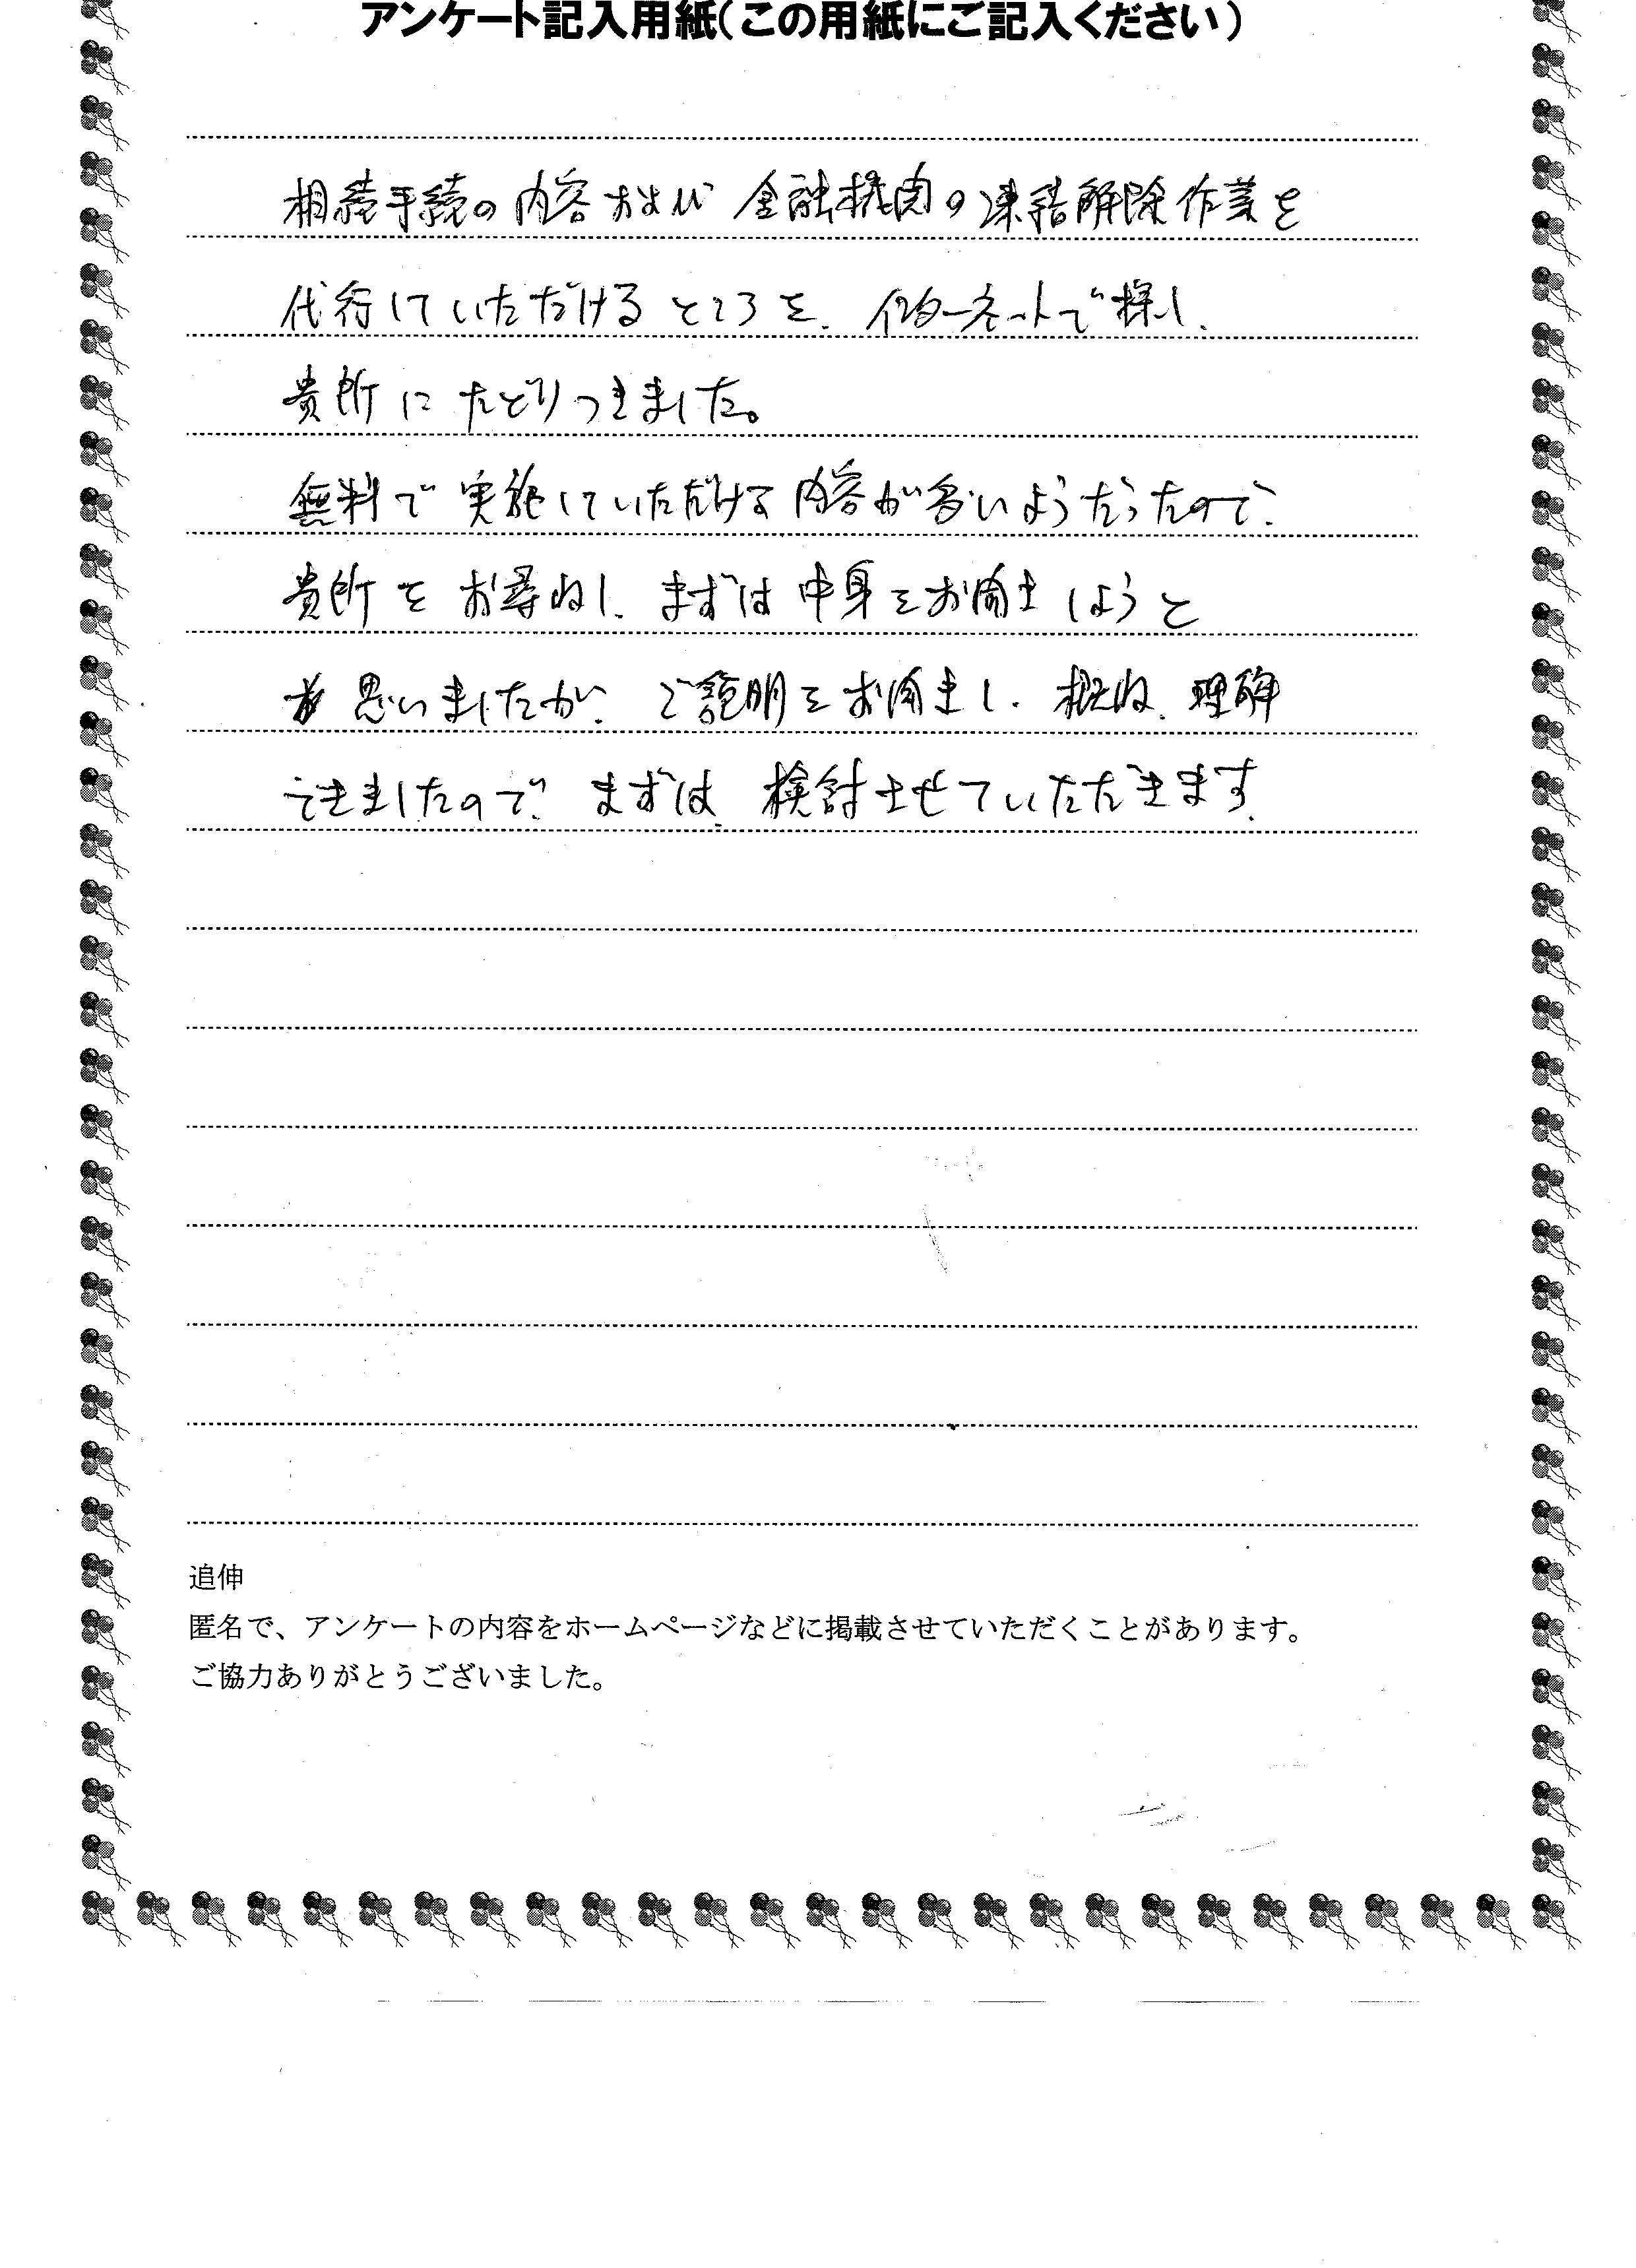 アンケート記入用紙(この用紙にご記入ください)
相続手続の内容および 金融機関の凍結解除作業を
代行していただけるところを、インターネットで探し、
貴所にたどりつきました。
無料で実施していただける内容が多いようだったので、
貴所をお尋ねし、まずは中身をお聞きしようと
思いましたが、ご説明をお聞きし、概ね、理解
できましたので、まずは、検討させていただきます。
追伸
匿名で、アンケートの内容をホームページなどに掲載させていただくことがあります。
ご協力ありがとうございました。